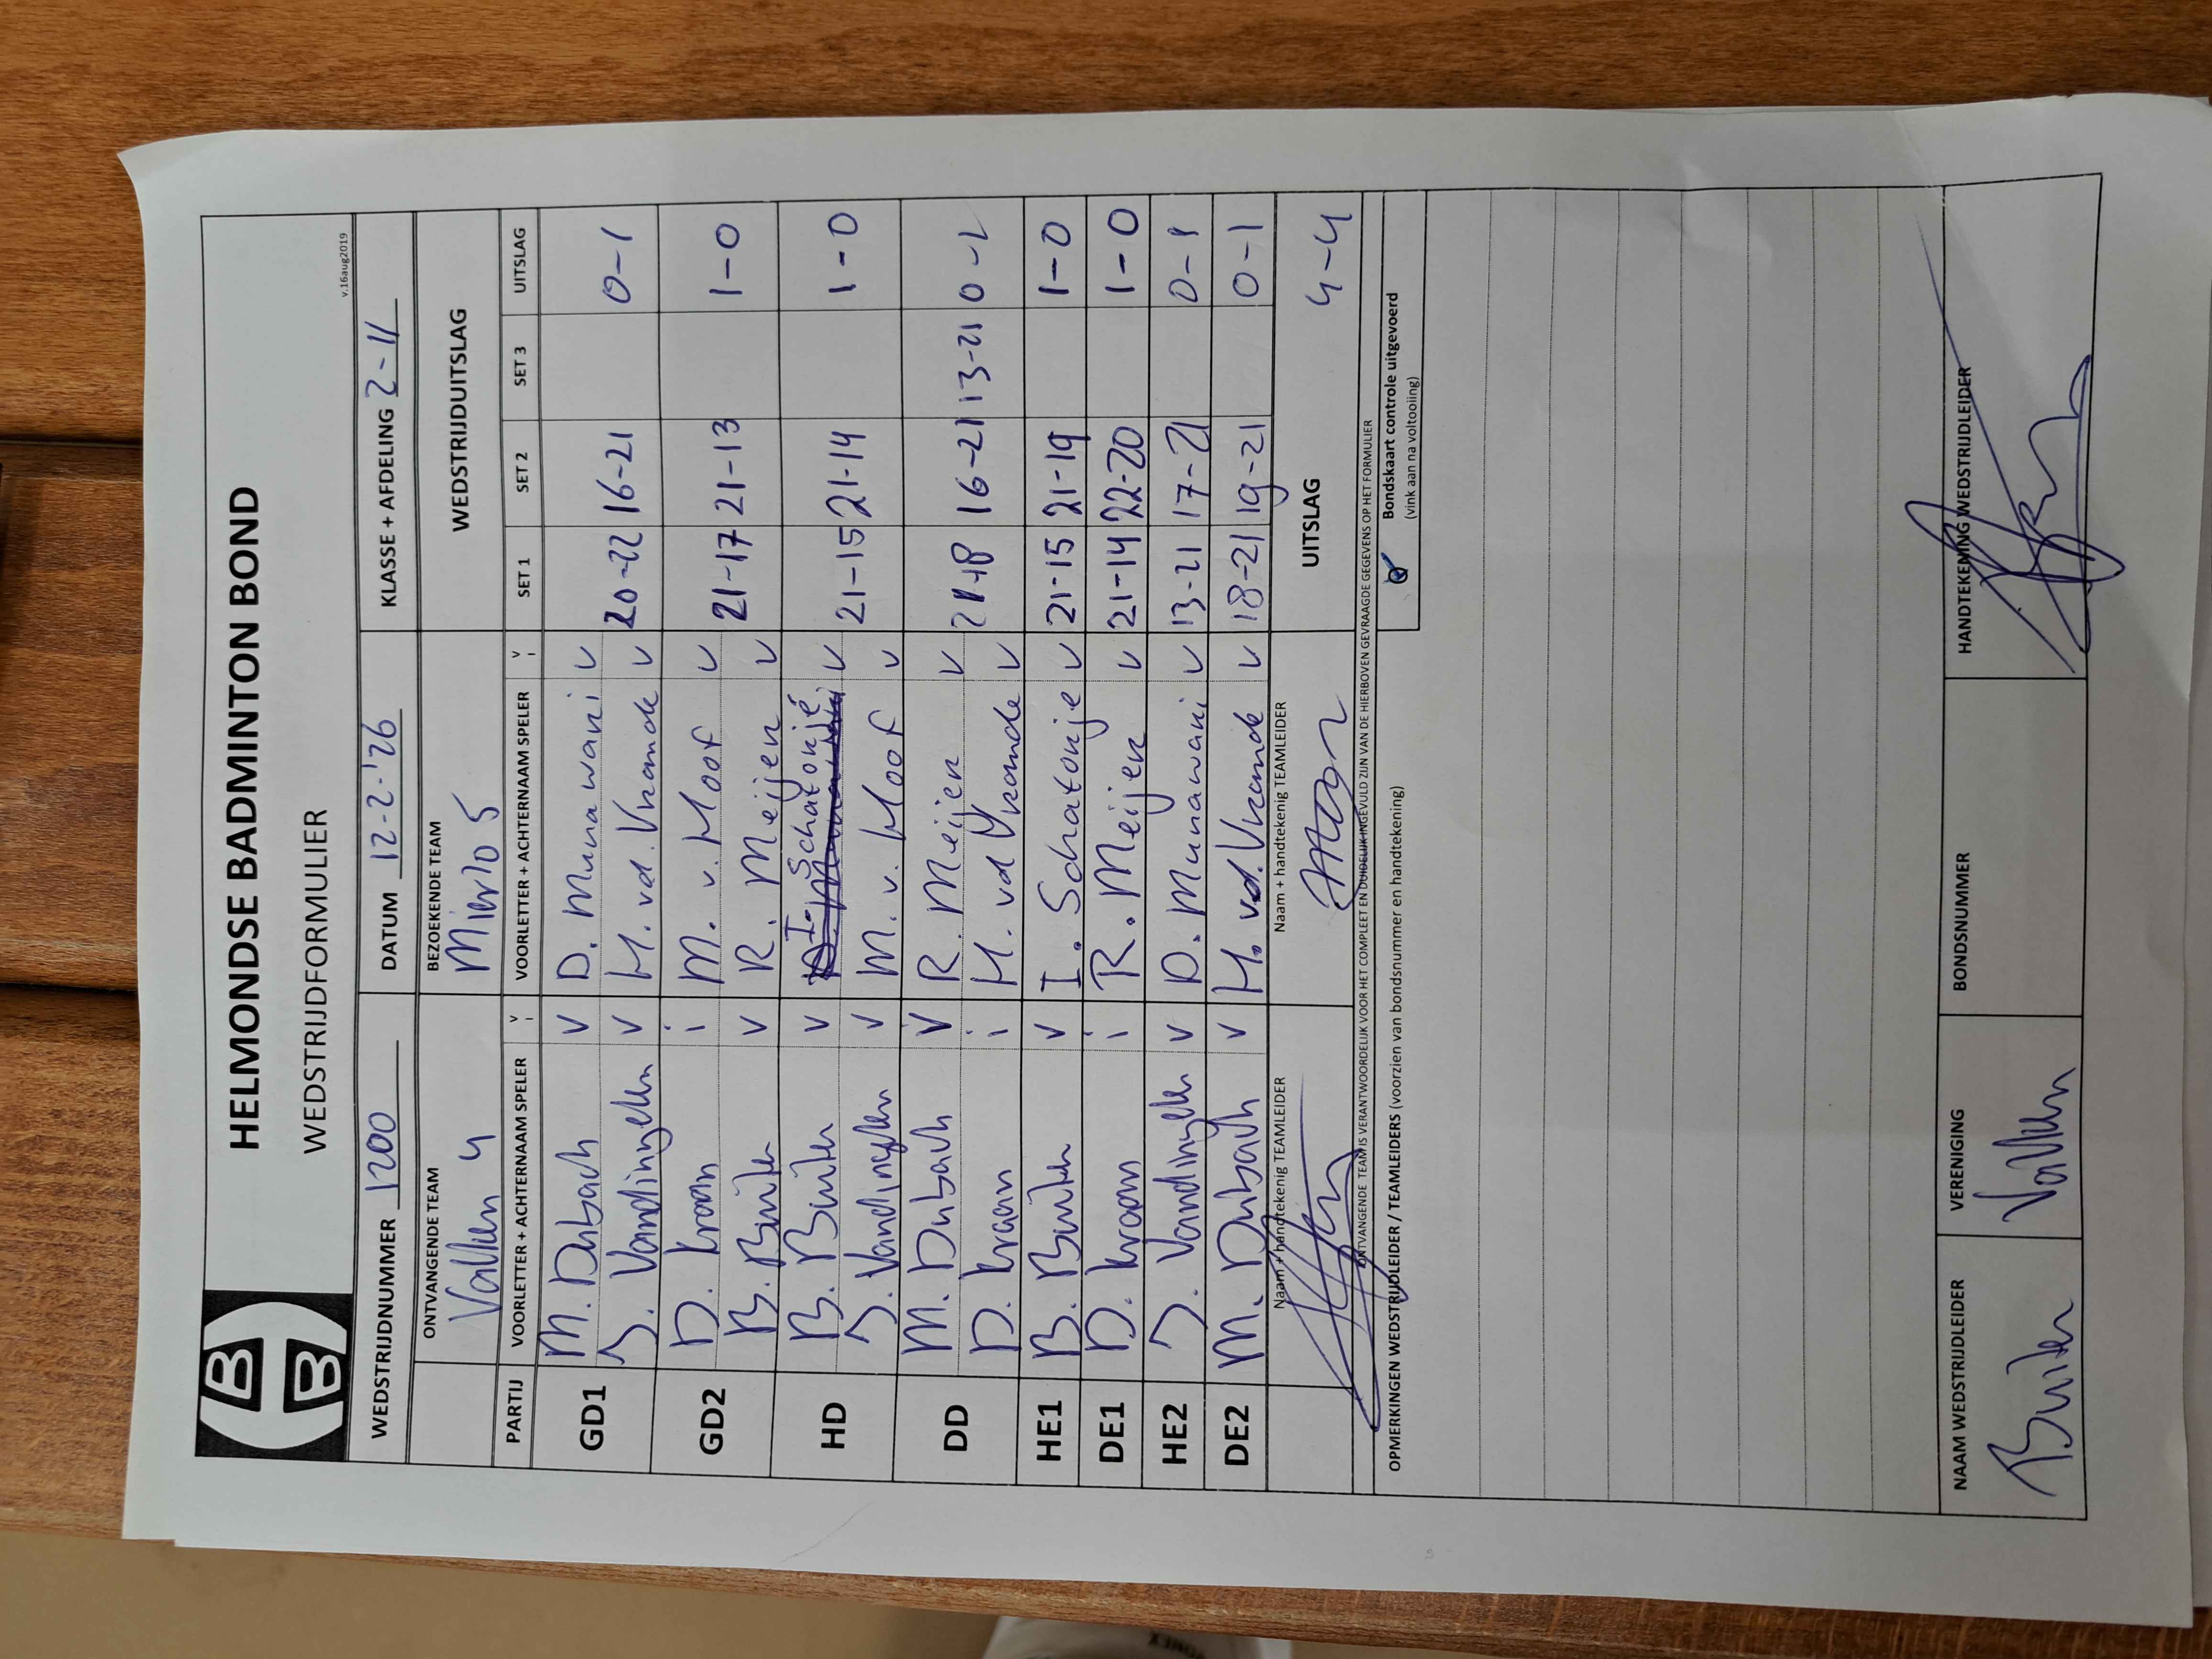 HELMONDSE BADMINTON BOND
WEDSTRIJDFORMULIER
v.16aug2019
WEDSTRIJDNUMMER 1200 DATUM 12-2-'26 KLASSE + AFDELING 2-11
ONTVANGENDE TEAM BEZOEKENDE TEAM WEDSTRIJDUITSLAG
Valken 4 Mierlo 5
PARTIJ VOORLETTER + ACHTERNAAM SPELER v i VOORLETTER + ACHTERNAAM SPELER v i SET 1 SET 2 SET 3 UITSLAG
GD1 M. Durbach v D. Munawani v
J. Vandingelen v H. vd. Vrande v 20-22 16-21 0-1
GD2 D. Kraan i M. v. Hoof v
B. Buiter v R. Meijen v 21-17 21-13 1-0
HD B. Buiter v I. Schatonjé v
J. Vandingelen v M. v. Hoof v 21-15 21-14 1-0
DD M. Durbach v R. Meijen v
D. Kraan i H. vd Vrande v 21-18 16-21 13-21 0-1
HE1 B. Buiter v I. Schatonje v 21-15 21-19 1-0
DE1 D. Kraan i R. Meijen v 21-14 22-20 1-0
HE2 J. Vandingelen v D. Munawani v 13-21 17-21 0-1
DE2 M. Durbach v H. vd. Vrande v 18-21 19-21 0-1
Naam + handtekenig TEAMLEIDER Naam + handtekenig TEAMLEIDER UITSLAG 4-4
ONTVANGENDE TEAM IS VERANTWOORDELIJK VOOR HET COMPLEET EN DUIDELIJK INGEVULD ZIJN VAN DE HIERBOVEN GEVRAAGDE GEGEVENS OP HET FORMULIER
OPMERKINGEN WEDSTRIJDLEIDER / TEAMLEIDERS (voorzien van bondsnummer en handtekening)
Bondskaart controle uitgevoerd
(vink aan na voltooiing)
NAAM WEDSTRIJDLEIDER VERENIGING BONDSNUMMER HANDTEKENING WEDSTRIJDLEIDER
Buiter Valken